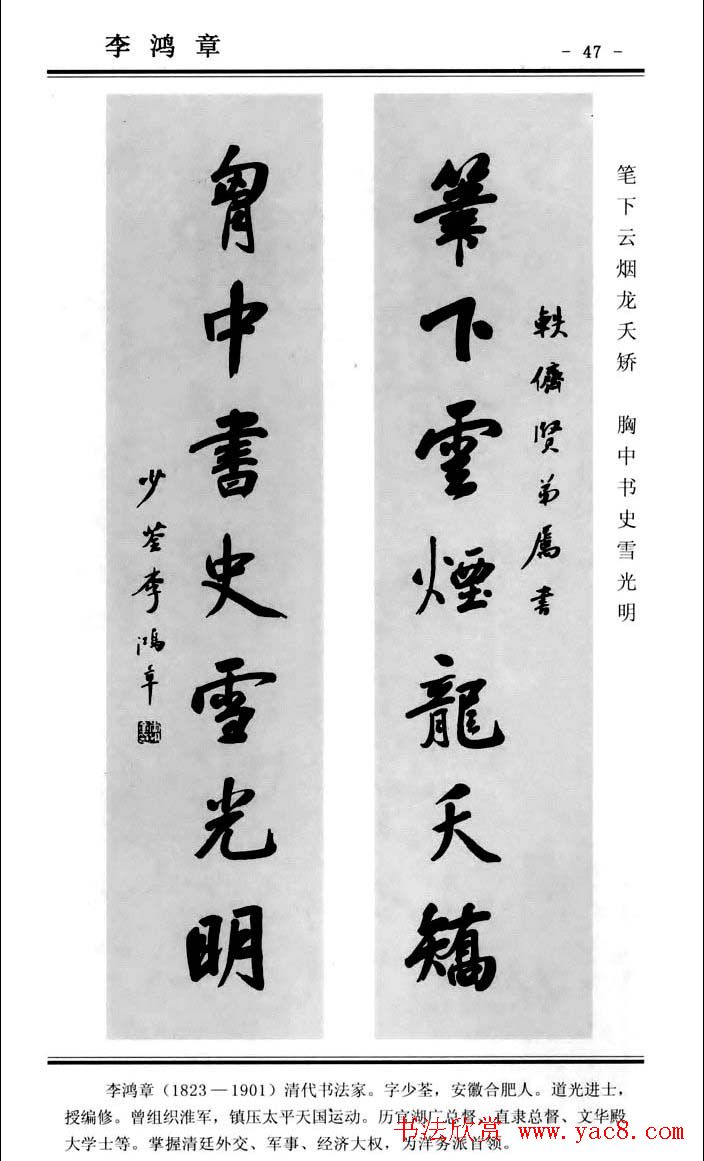 李鸿章
- 47 -
笔下云烟龙夭矫 胸中书史雪光明
軼儕賢弟屬書
筆下雲煙龍夭矯
胷中書史雪光明
少荃李鴻章
李鸿章（1823—1901）清代书法家。字少荃，安徽合肥人。道光进士，
授编修。曾组织淮军，镇压太平天国运动。历官湖广总督、直隶总督、文华殿
大学士等。掌握清廷外交、军事、经济大权，为洋务派首领。
书法欣赏 www.yac8.com